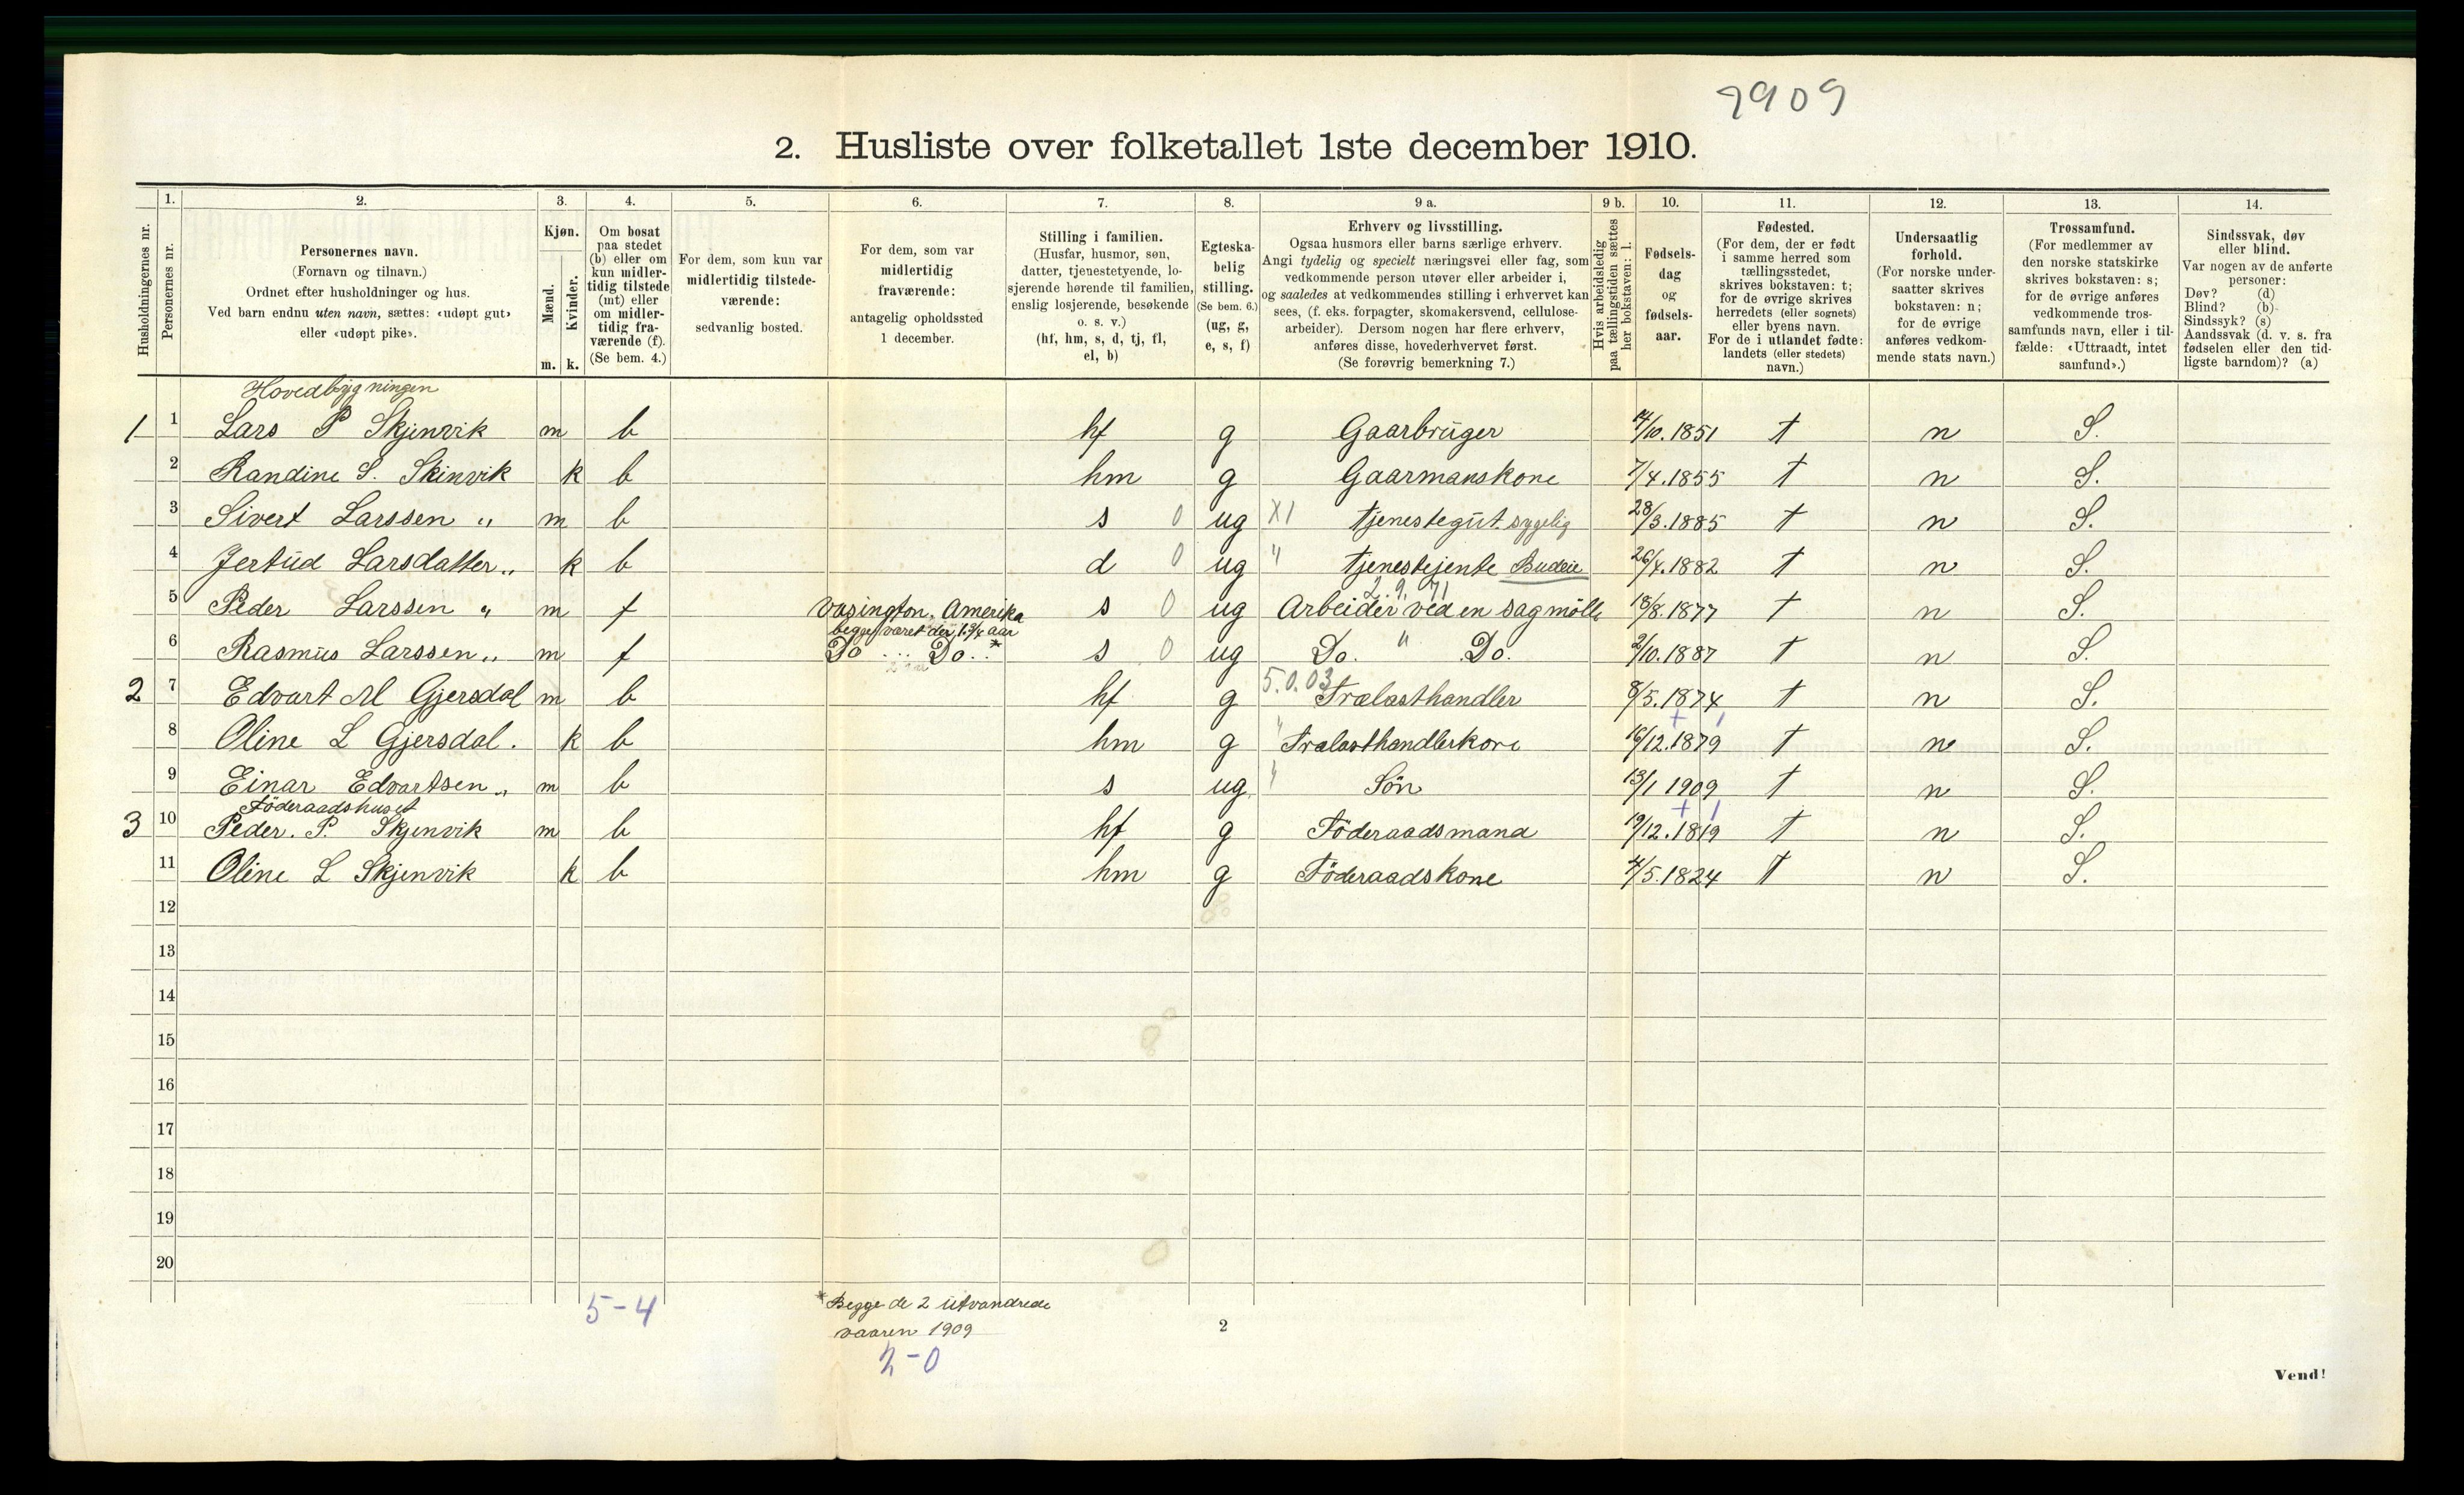 2909
2. Husliste over folketallet 1ste december 1910.
Husholdningernes nr.
1. Personernes nr.
2. Personernes navn. (Fornavn og tilnavn.) Ordnet efter husholdninger og hus. Ved barn endnu uten navn, sættes: «udøpt gut» eller «udøpt pike».
3. Kjøn. Mænd. m. Kvinder. k.
4. Om bosat paa stedet (b) eller om kun midlertidig tilstede (mt) eller om midlertidig fraværende (f). (Se bem. 4.)
5. For dem, som kun var midlertidig tilstedeværende: sedvanlig bosted.
6. For dem, som var midlertidig fraværende: antagelig opholdssted 1 december.
7. Stilling i familien. (Husfar, husmor, søn, datter, tjenestetyende, losjerende hørende til familien, enslig losjerende, besøkende o. s. v.) (hf, hm, s, d, tj, fl, el, b)
8. Egteskabelig stilling. (Se bem. 6.) (ug, g, e, s, f)
9 a. Erhverv og livsstilling. Ogsaa husmors eller barns særlige erhverv. Angi tydelig og specielt næringsvei eller fag, som vedkommende person utøver eller arbeider i, og saaledes at vedkommendes stilling i erhvervet kan sees, (f. eks. forpagter, skomakersvend, cellulosearbeider). Dersom nogen har flere erhverv, anføres disse, hovederhvervet først. (Se forøvrig bemerkning 7.)
9 b. Hvis arbeidsledig paa tællingstiden sættes her bokstaven: l.
10. Fødselsdag og fødselsaar.
11. Fødested. (For dem, der er født i samme herred som tællingsstedet, skrives bokstaven: t; for de øvrige skrives herredets (eller sognets) eller byens navn. For de i utlandet fødte: landets (eller stedets) navn.)
12. Undersaatlig forhold. (For norske undersaatter skrives bokstaven: n; for de øvrige anføres vedkommende stats navn.)
13. Trossamfund. (For medlemmer av den norske statskirke skrives bokstaven: s; for de øvrige anføres vedkommende trossamfunds navn, eller i tilfælde: «Uttraadt, intet samfund».)
14. Sindssvak, døv eller blind. Var nogen av de anførte personer: Døv? (d) Blind? (b) Sindssyk? (s) Aandssvak (d. v. s. fra fødselen eller den tidligste barndom)? (a)
Hovedbygningen
1 1 Lars P Skjenvik m b hf g Gaarbrüger 14/10.1851 t n S.
2 Randine S. Skinvik k b hm g Gaarmanskone 7/4.1855 t n S.
3 Sivert Larssen " m b s 0 ug X1 tjenestegüt sygelig 28/3.1885 t n S.
4 Jertüd Larsdatter " k b d 0 ug " tjenestejente Budeie 26/4.1882 t n S.
2.9.71
5 Peder Larssen " m f Vasington, Amerika s 0 ug Arbeider ved en sagmölle 18/8.1877 t n S.
begge været der 1 3/4 aar
6 Rasmüs Larssen " m f Do ... Do..* s 0 ug Do. " Do. 2/10.1887 t n S.
5.0.03
2 7 Edvart M Gjersdal m b hf g Trælasthandler 8/5.1874 t n S.
8 Oline L Gjersdal. k b hm g " Trælasthandlerkone 16/12.1879 t n S.
9 Einar Edvartsen " m b s ug. " Sön 13/1 1909 t n S.
Föderaadshuset
3 10 Peder. P. Skjenvik m b hf g Föderaadsmand 19/12.1819 t n S.
11 Oline L Skjenvik k b hm g Föderaadskone 4/5.1824 t n S.
12
13
14
15
16
17
18
19
20
5-4
*Begge de 2 ütvandrede
vaaren 1909
2-0
2
Vend!